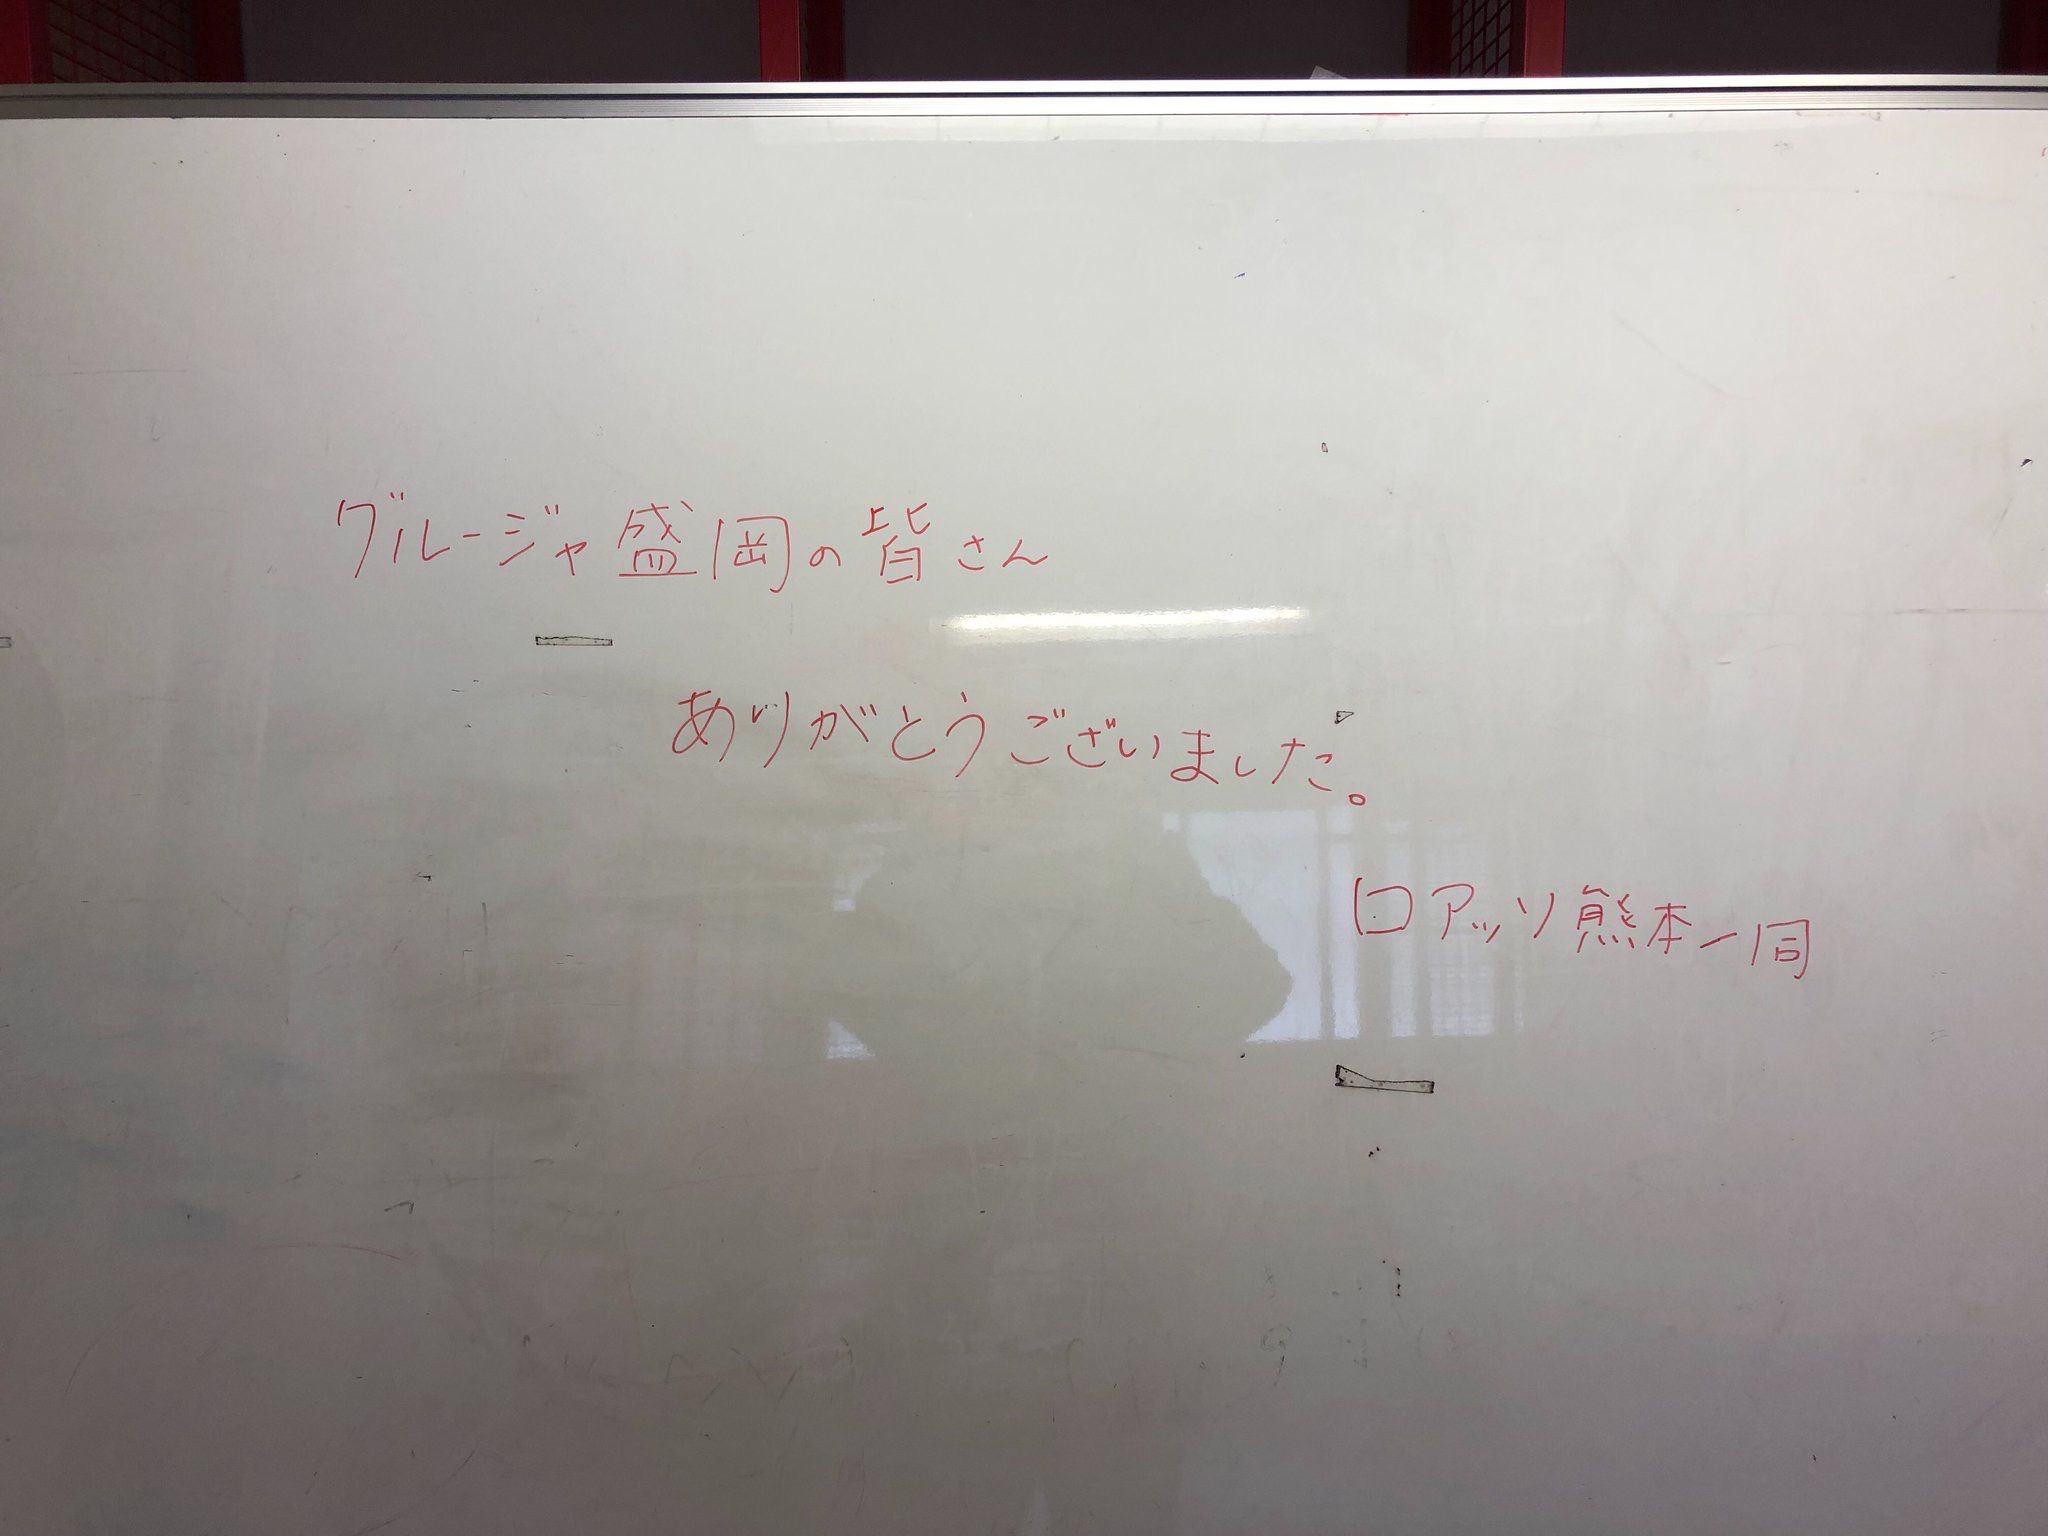 グルージャ盛岡の皆さん
ありがとうございました。
ロアッソ熊本一同